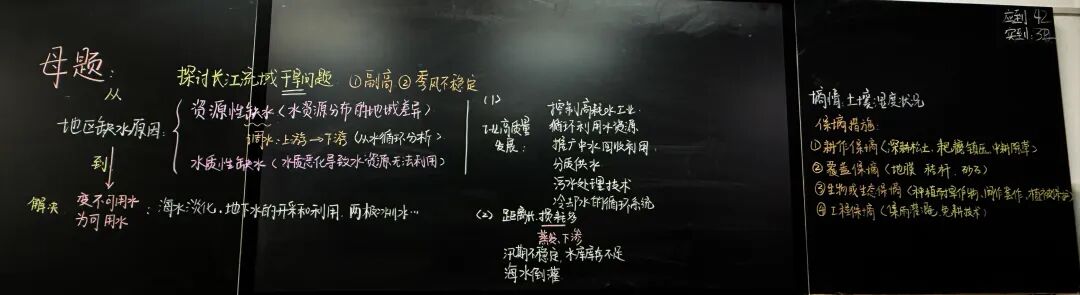 母题：
探讨长江流域干旱问题 ①副高 ②季风不稳定
从
地区缺水原因：
资源性缺水（水资源分布的地域差异）
调水：上游→下游（从水循环分析）
水质性缺水（水质恶化导致水资源无法利用）
到
解决
变不可用水
为可用水
：海水淡化、地下水的开采和利用，两极冰川水…
（1）
工业高质量
发展：
控制高耗水工业
循环利用水资源
推广中水回收利用
分质供水
污水处理技术
冷却水的循环系统
（2）距离长，损耗多
蒸发、下渗
汛期不稳定，水库库存不足
海水倒灌
应到 42
实到：
墒情：土壤湿度状况
保墒措施：
①耕作保墒（深耕松土、耙耱镇压、中耕除草）
②覆盖保墒（地膜 秸秆、砂石）
③生物或生态保墒（种植耐旱作物、间作套作、
④工程保墒（